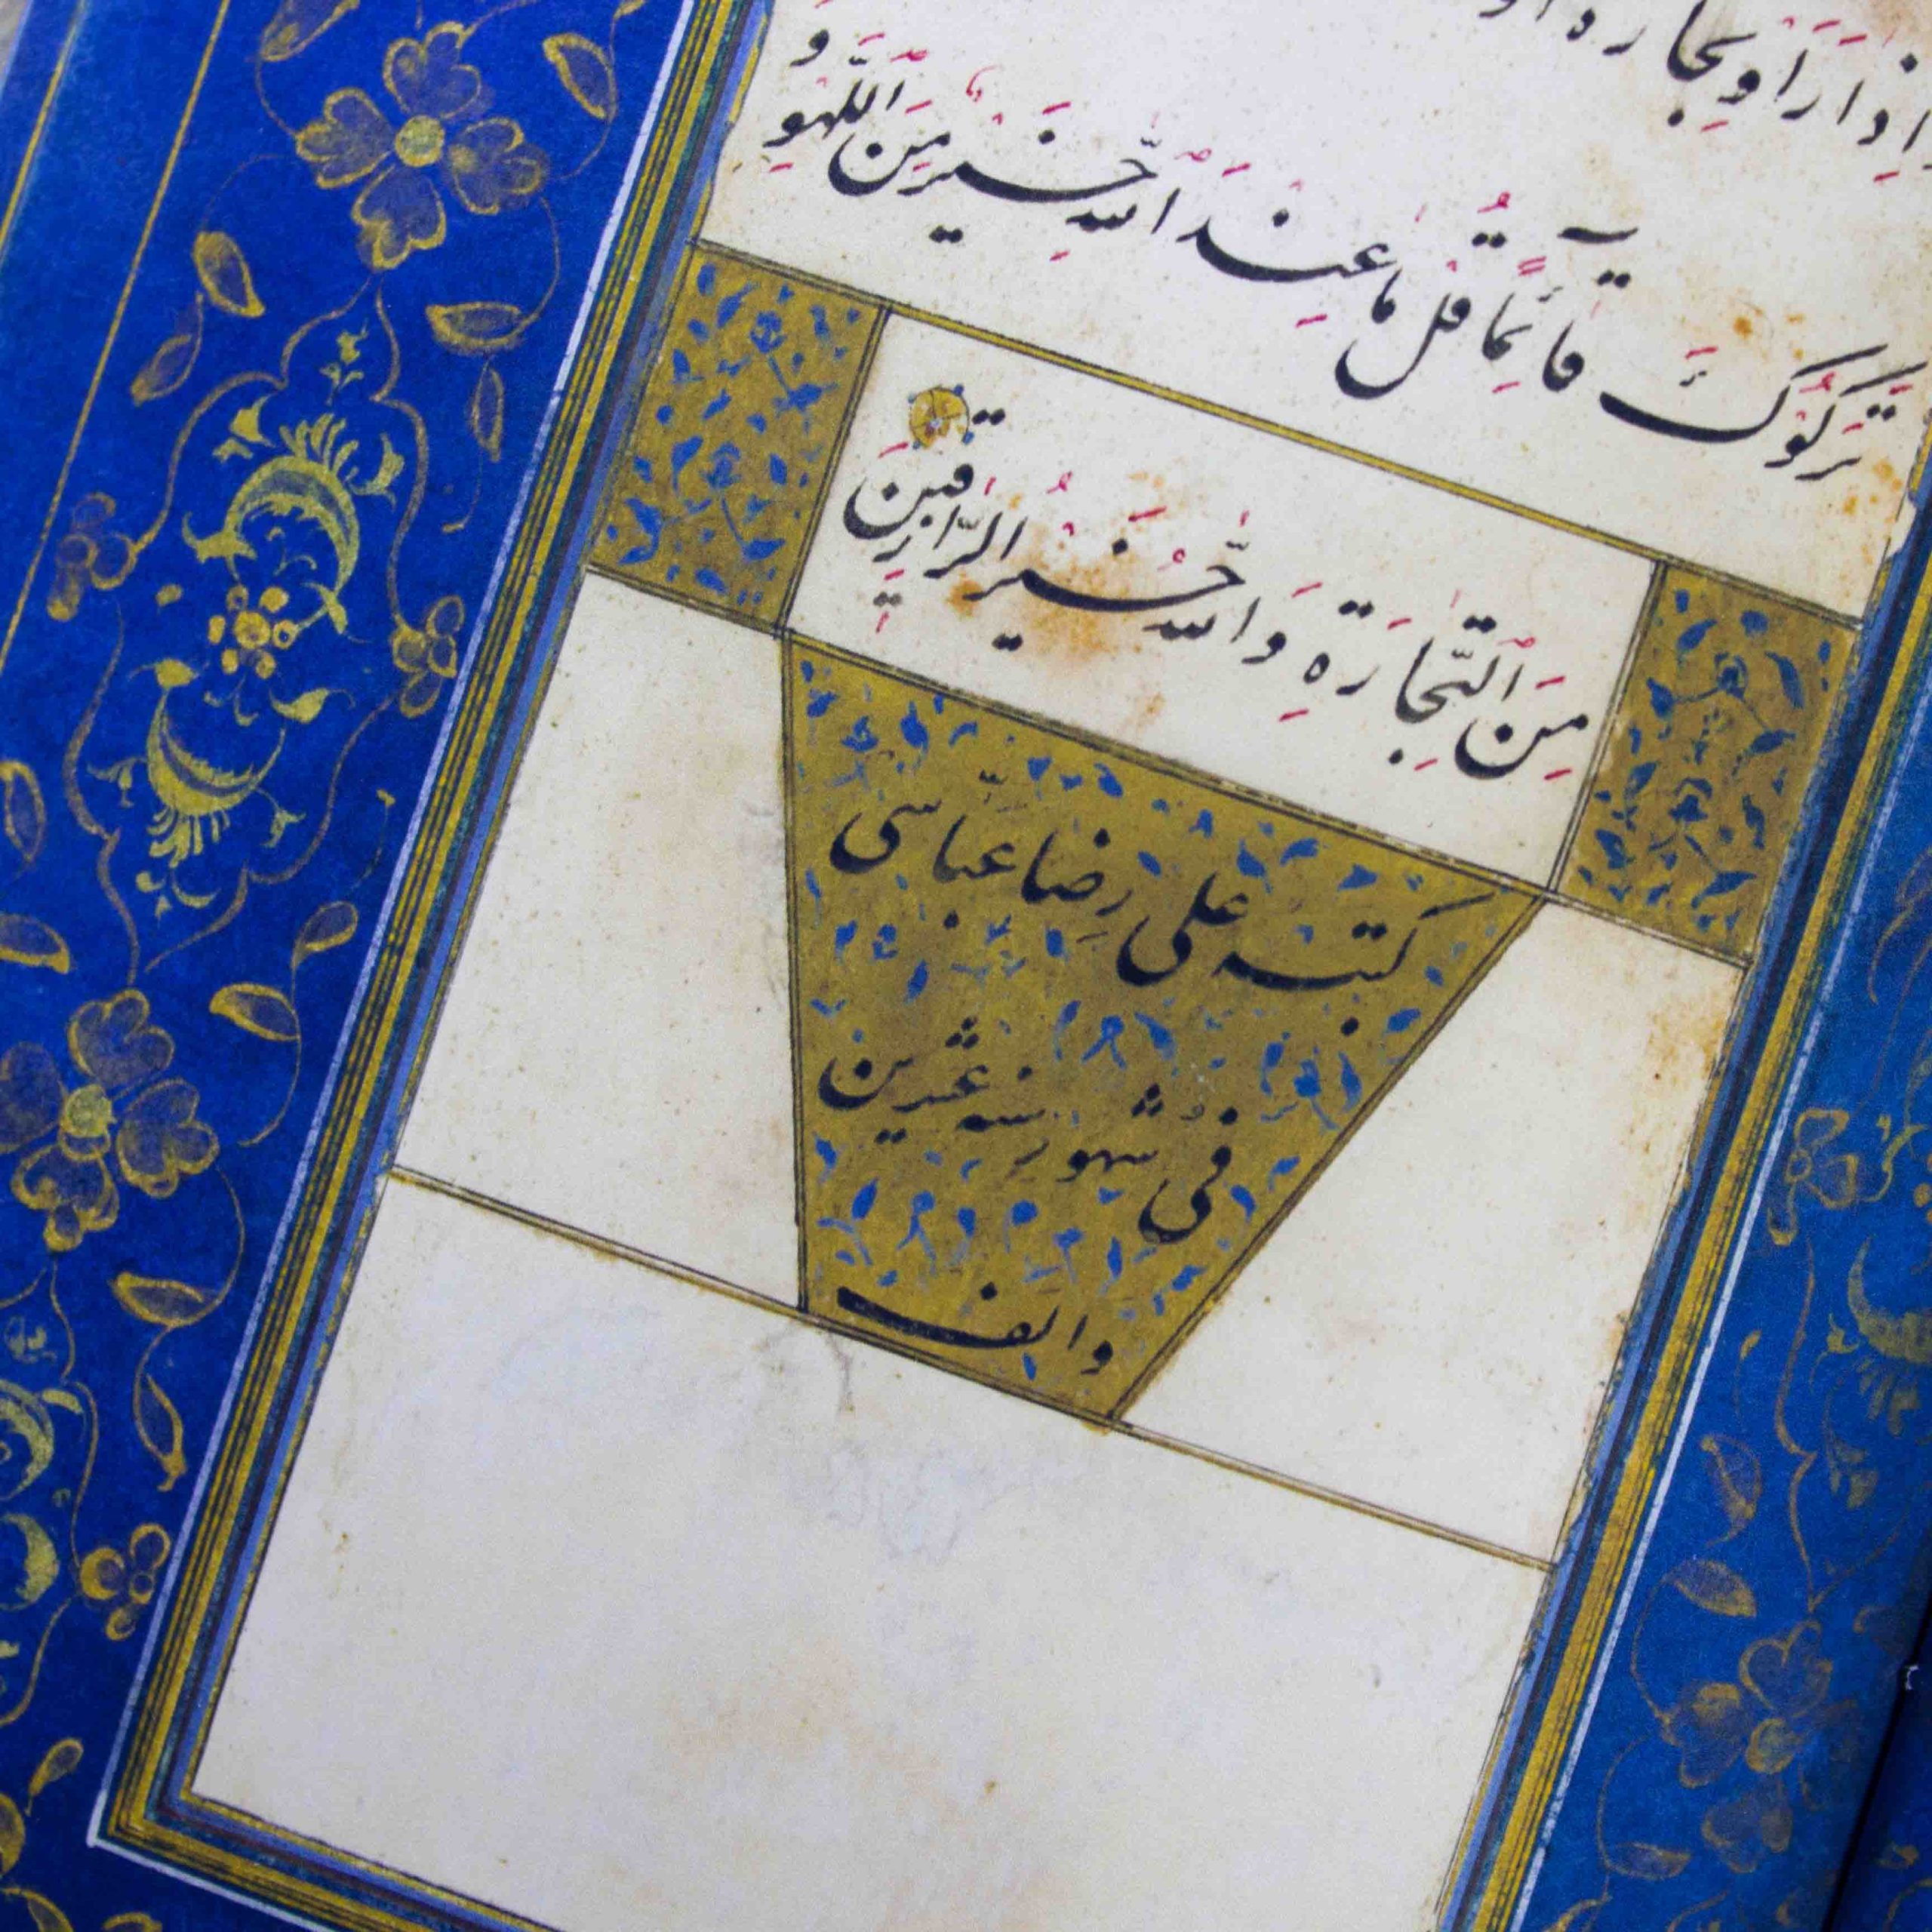 وَإِذَا رَأَوْا تِجَارَةً أَوْ
وَ
تَرَكُوكَ قَآئِمًا قُلْ مَا عِنْدَ اللّٰهِ خَيْرٌ مِنَ اللَّهْوِ
مِنَ التِّجَارَةِ وَاللّٰهُ خَيْرُ الرَّازِقِينَ
کتبه علی رضا عبّاسی
فی شهور سنه عشرین
والف